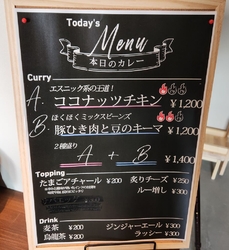 Today's
Menu
本日のカレー
Curry
エスニック系の王道!
A. ココナッツチキン ¥1,200
ほくほくミックスビーンズ
B. 豚ひき肉と豆のキーマ ¥1,200
2種盛り
A + B ¥1,400
Topping
たまごアチャール ¥200
炙りチーズ ¥250
ルー増し ¥300
Drink
麦茶 ¥200
烏龍茶 ¥200
ジンジャーエール ¥300
ラッシー ¥300